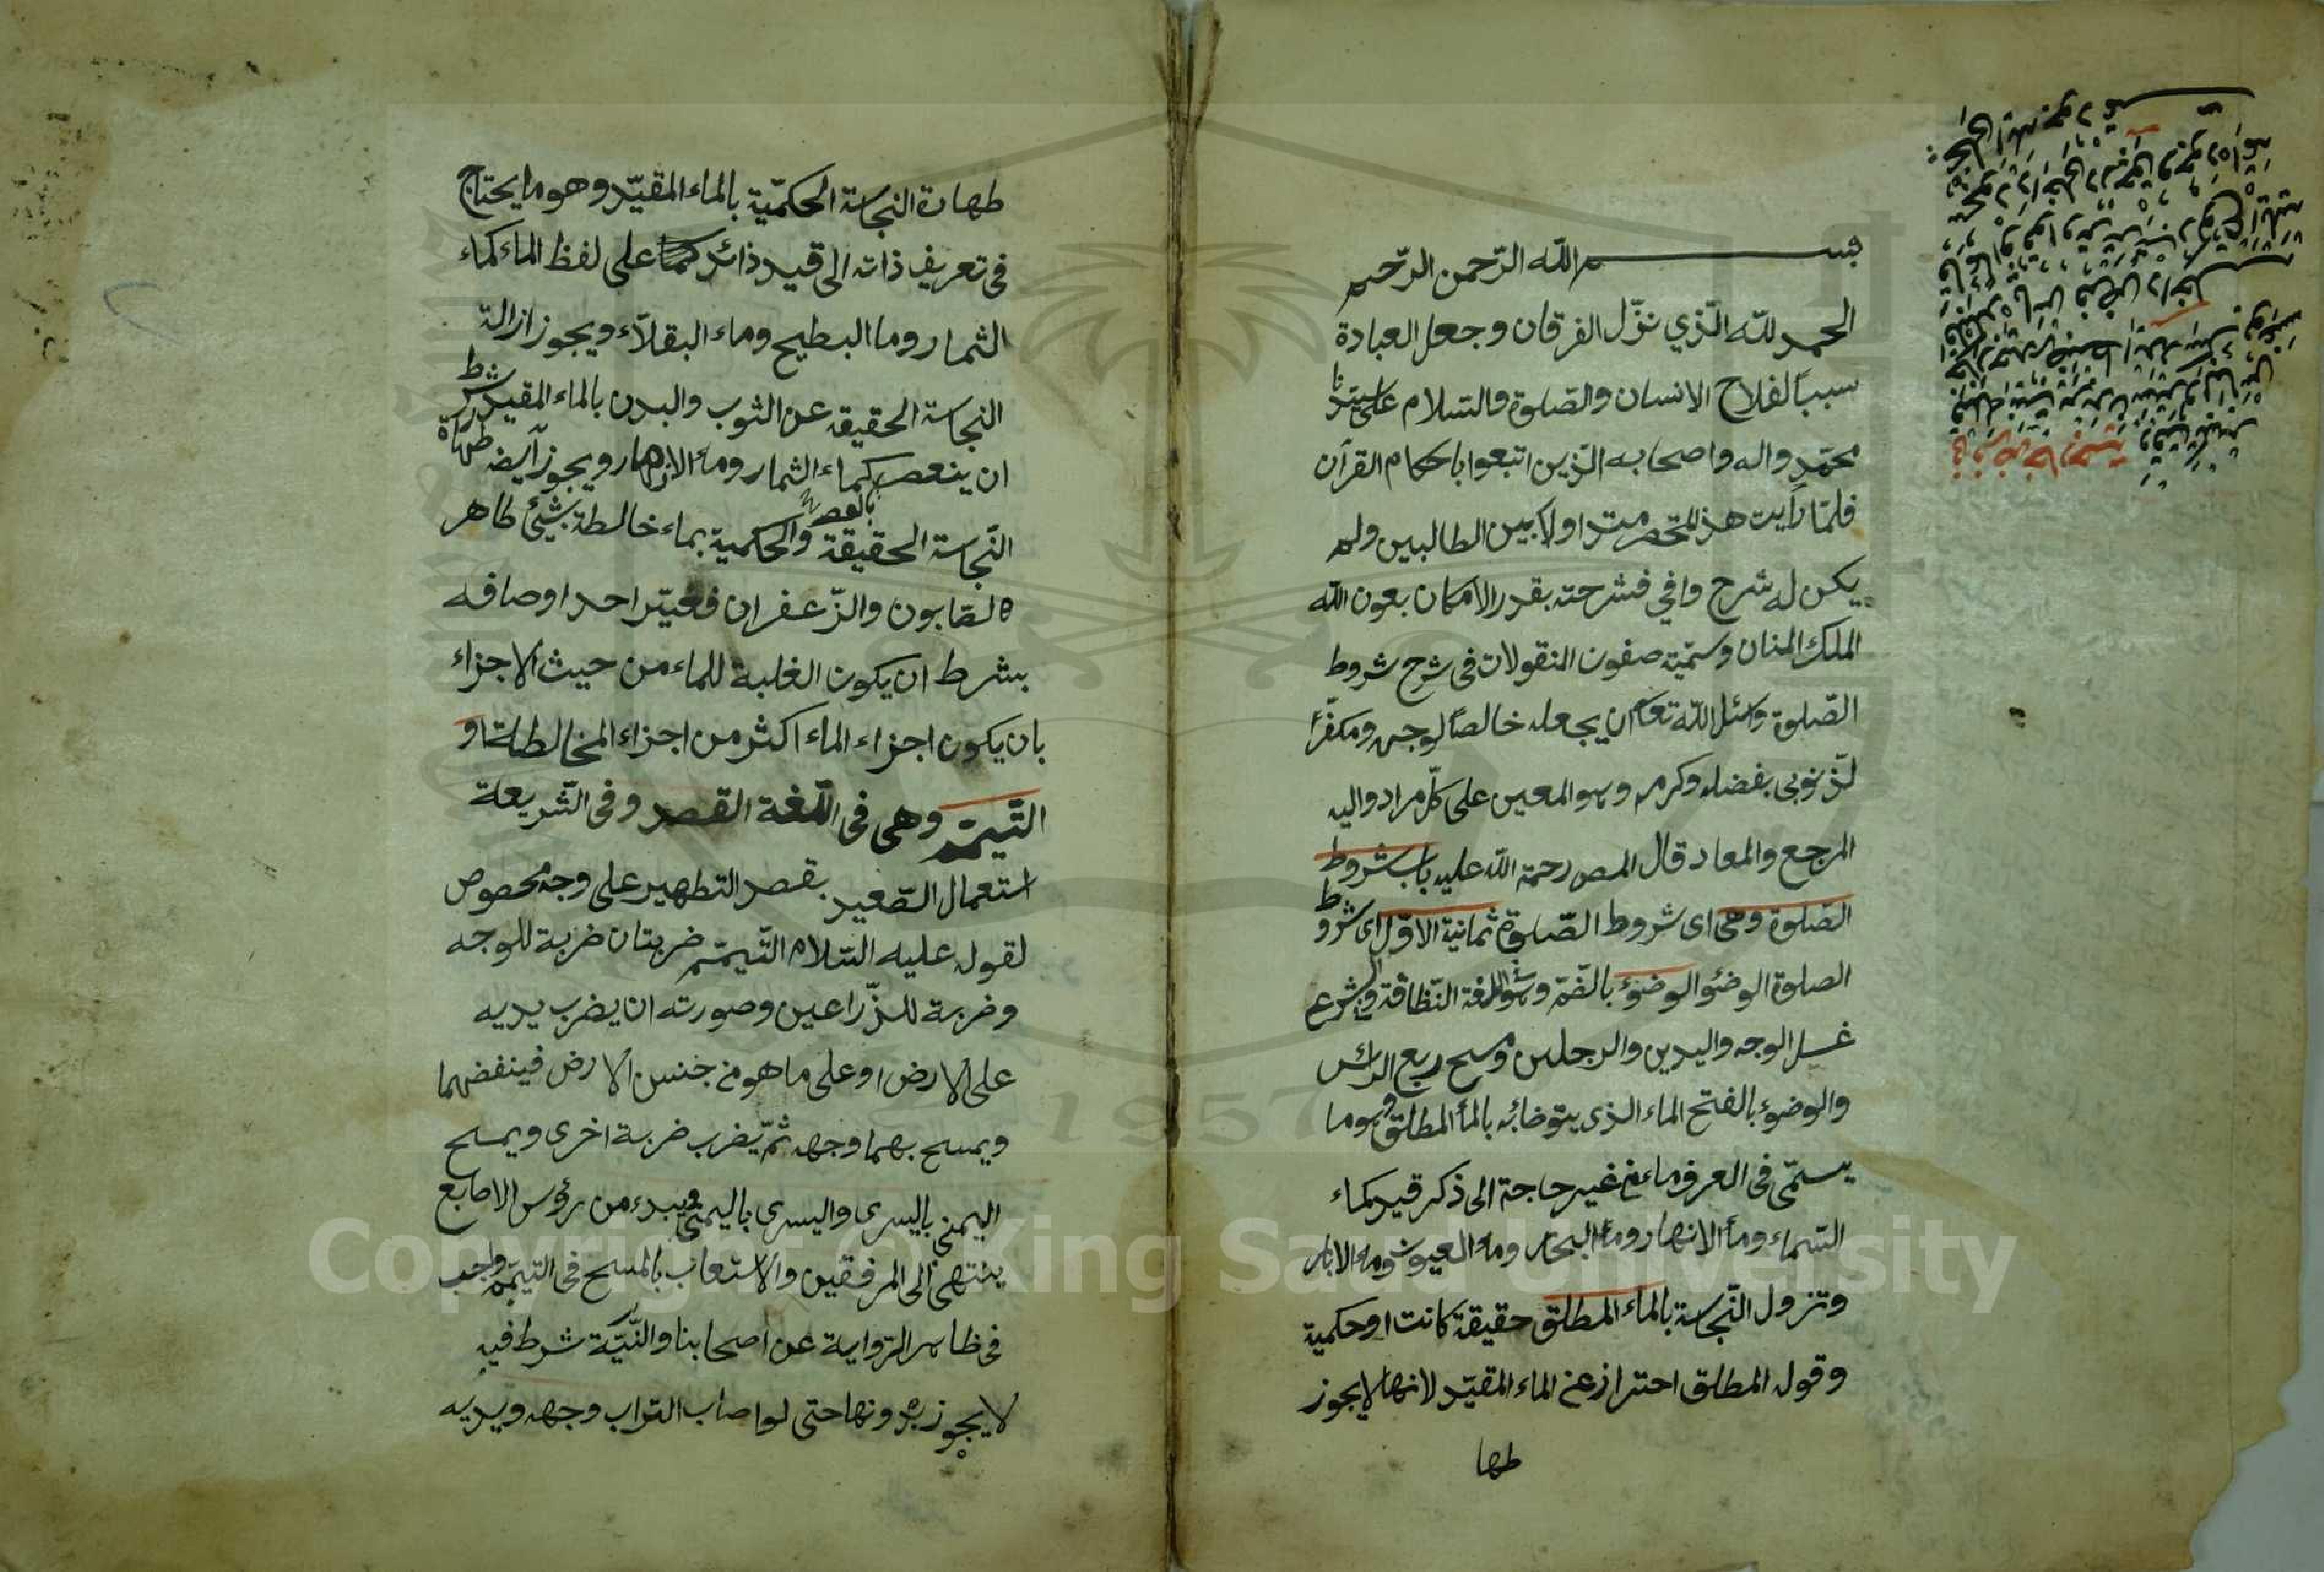 بسم الله الرّحمن الرّحيم
الحمد للّه الّذي نزّل الفرقان وجعل العبادة
سببًا لفلاح الانسان والصّلوة والسّلام على سيّدنا
محمّد واله واصحابه الّذين اتبعوا باحكام القرآن
فلمّا رأيت هذ المتحصر متداولا بين الطالبين ولم
يكن له شرح وافي فشرحته بقدر الامكان بعون الله
الملك المنان وسمّيته صفون النقولات فى شرح شروط
الصّلوة واسئل اللّه تعا ان يجعله خالصًا لوجهه ومكفّرًا
لذنوبى بفضله وكرمه وهو المعين على كلّ مراد واليه
المرجع والمعاد قال المص رحمة الله عليه باب شروط
الصّلوة وهى اى شروط الصّلوة ثمانية الاوّل اى شروط
الصلوة الوضئو الوضوء بالضّمّ وهو اللغة النّظافة وفى الشرع
غسل الوجه واليدين والرجلين ومسح ربع الرأس
والوضوء بالفتح الماء الذى يتوضائبه بالمأ المطلق وهوما
يسمّى فى العرف ماء من غير حاجة الى ذكر قيد كماء
السّماء ومأ الانهار ومأ البحار ومأ العيون ومأ الابار
وتزول النّجاسة بالماء المطلق حقيقة كانت اوحكمية
وقوله المطلق احتراز عن الماء المقيّد لانها لايجوز
طها
طهارة النجاسة الحكميّة بالماء المقيّد وهو ما يحتاج
فى تعريف ذاته الى قيد ذائد كما على لفظ الماء كماء
الثمار وما البطيح وماء البقلاّء ويجوز ازالة
النجاسة الحقيقه عن الثوب والبدن بالماء المقيد بشرط
ان ينعصر كماء الثمار ومأ الازهار ويجوز آيضه طهارة
بالعصر
النّجاسة الحقيقة والحكمية بماء خالطة بشئ طاهر
كالصّابون والزّعفران فغيّر احد اوصافه
بشرط ان يكون الغلبة للماء من حيث الاجزاء
بان يكون اجزاء الماء اكثر من اجزاء المخالطة او
التّيمّم وهى فى اللّغة القصد وفى الشّريعة
استعمال الصّعيد بقصد التطهير على وجه مخصوص
لقوله عليه السّلام التّيمّم ضربتان ضربة للوجه
وضربة للذّراعين وصورته ان يضرب يديه
على الارض او على ما هو من جنس الارض فينفضهما
ويمسح بهما وجهه ثمّ يضرب ضربة اخرى ويمسح
اليمنى باليسرى واليسرى باليمنى ويبدء من رؤس الاصابع
ينتهى الى المرفقين والاستعاب بالمسح فى التيمّم واجب
فى ظاهر الرّواية عن اصحابنا والنّيّة شرط فيه
لا يجوز بدونها حتى لو اصاب التراب وجهه ويديه
Copyright © King Saud University
1957